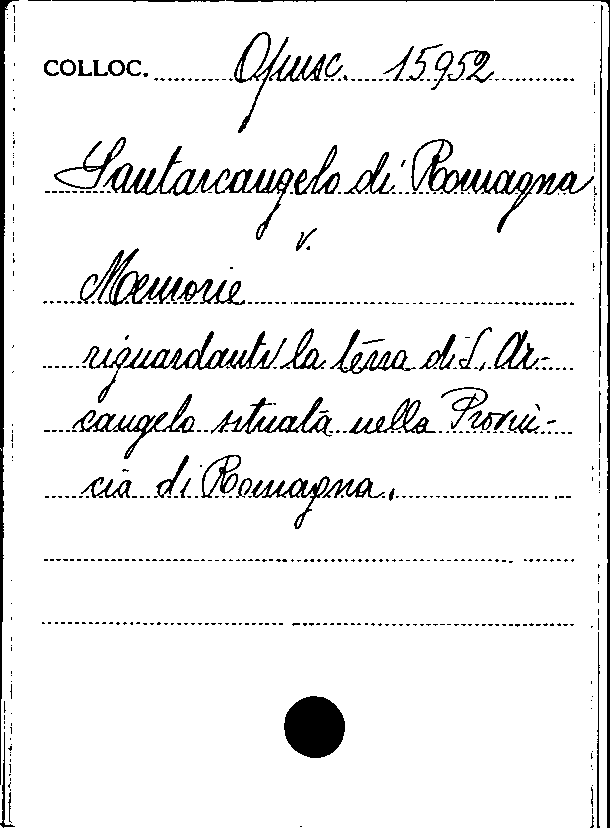 COLLOC. Opusc. 15952
Santarcangelo di Romagna
v.
Memorie
riguardanti la terra di S. Ar-
cangelo situata nella Provin-
cia di Romagna.